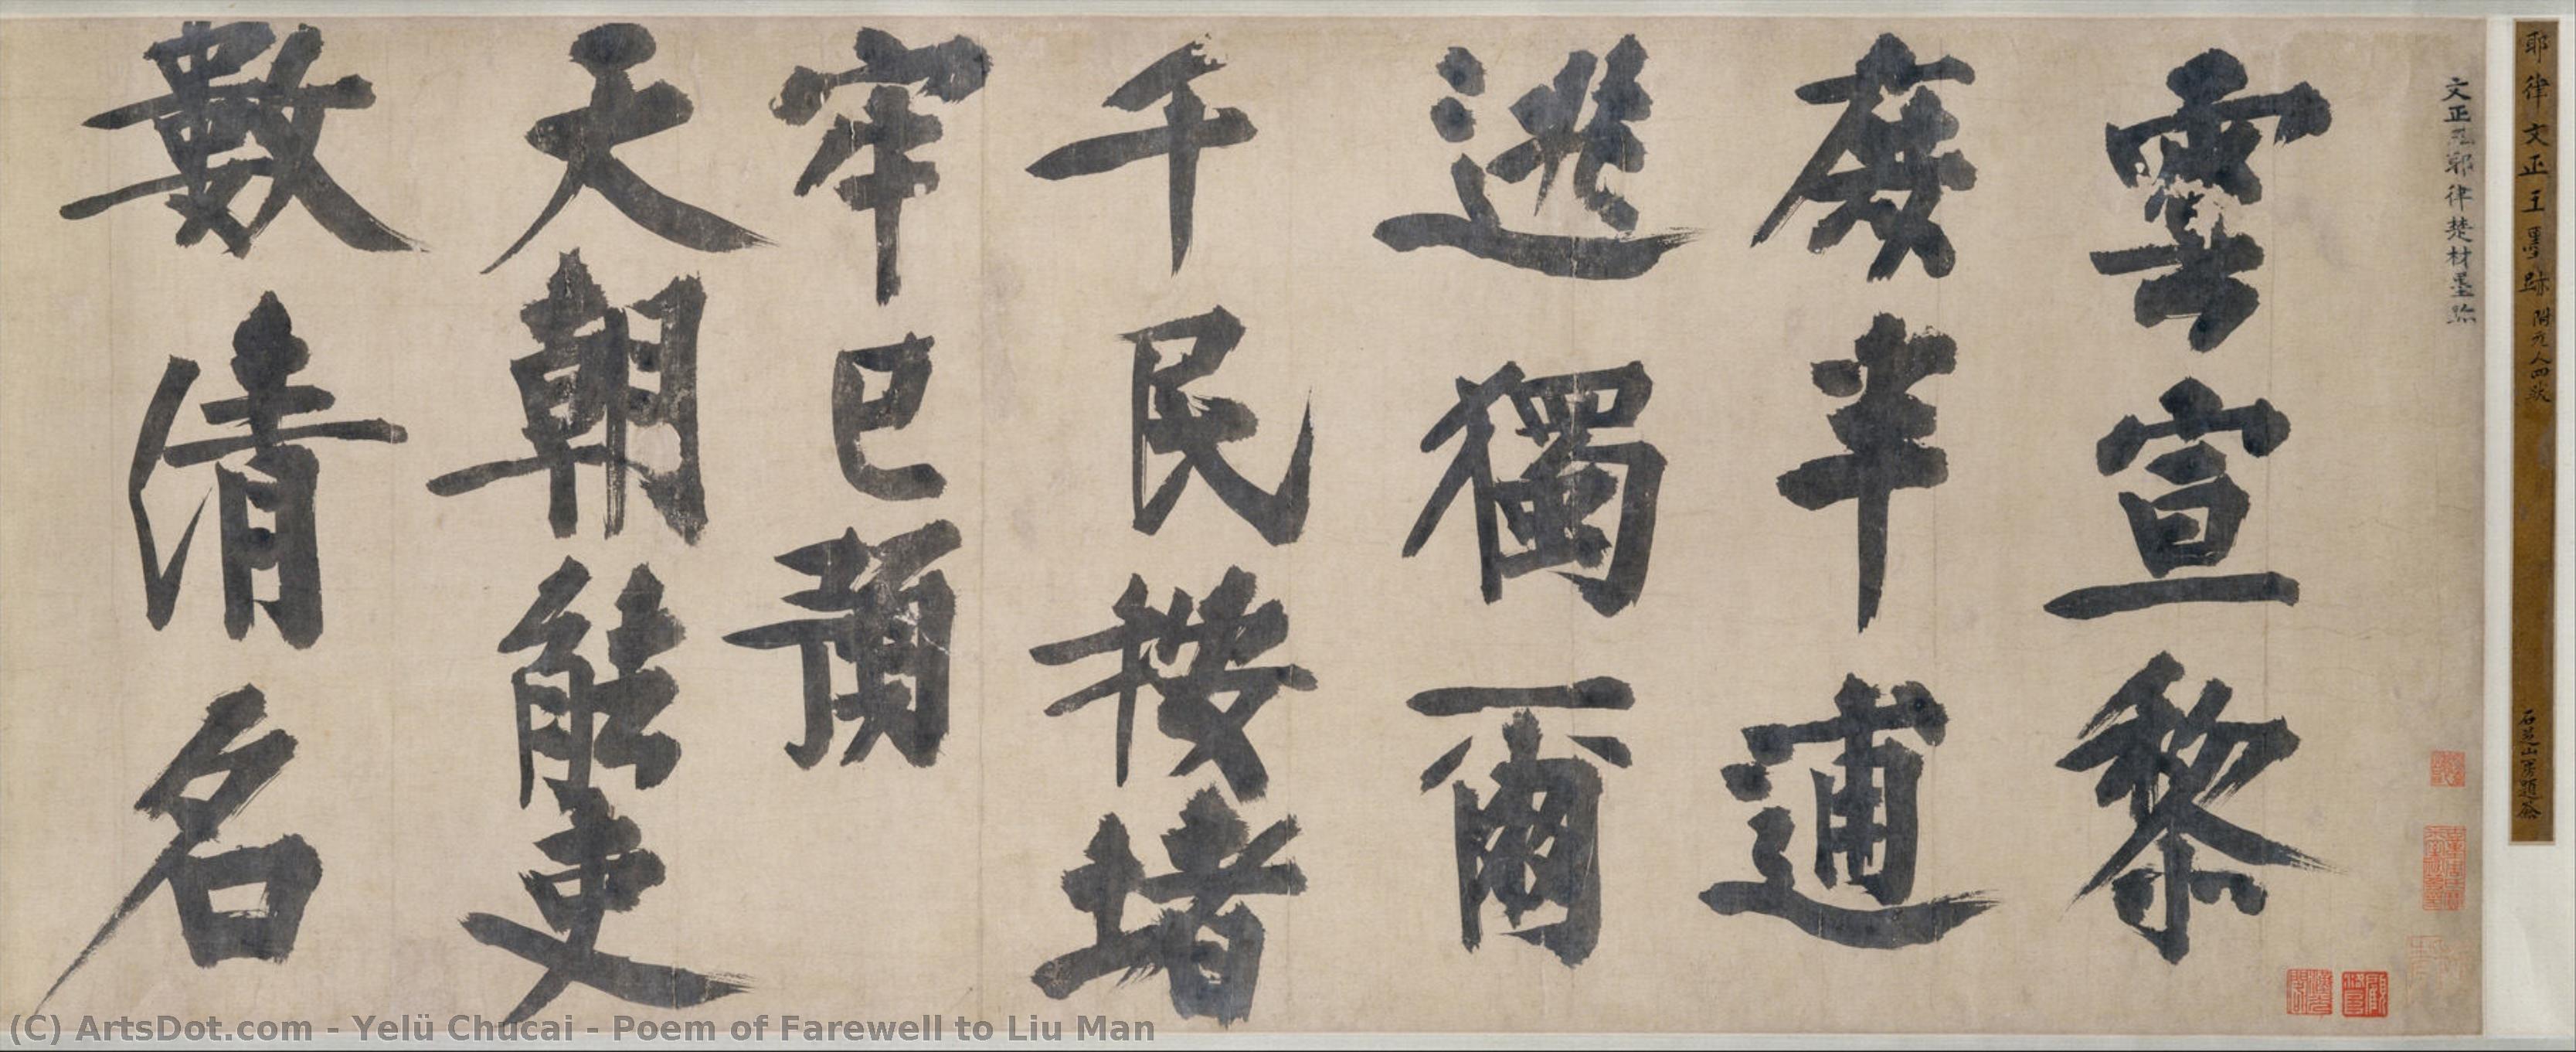 耶律文正王墨跡 附元人四跋
石芝山房題簽
文正王耶律楚材墨跡
雲宣黎
庶半逋
逃獨爾
千民按堵
牢已預
天朝能吏
數清名
(C) ArtsDot.com - Yelü Chucai - Poem of Farewell to Liu Man